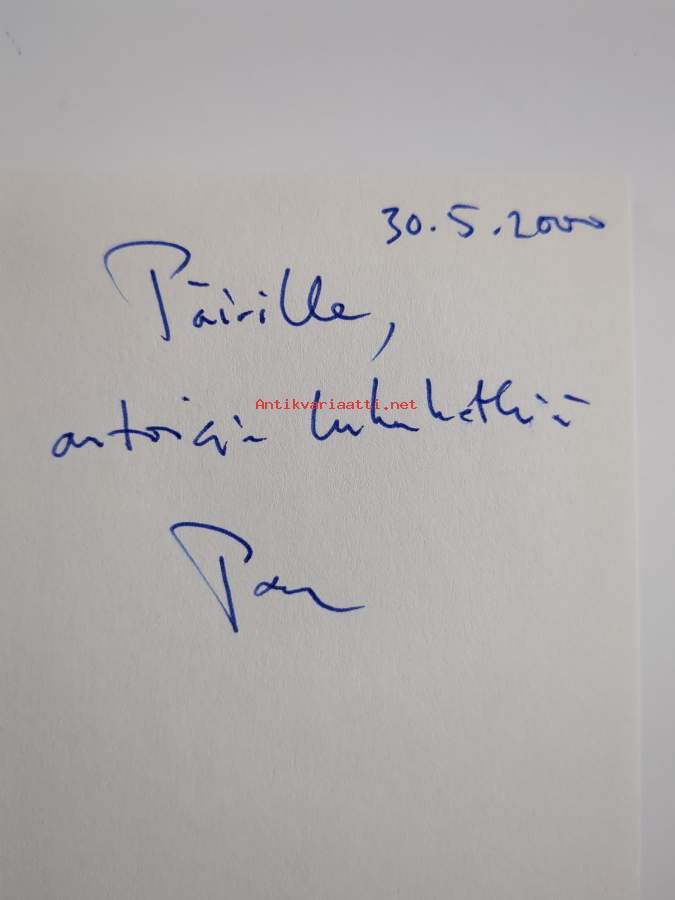 30.5.2000
Päiville,
antoisia lukuhetkiä
Antikvariaatti.net